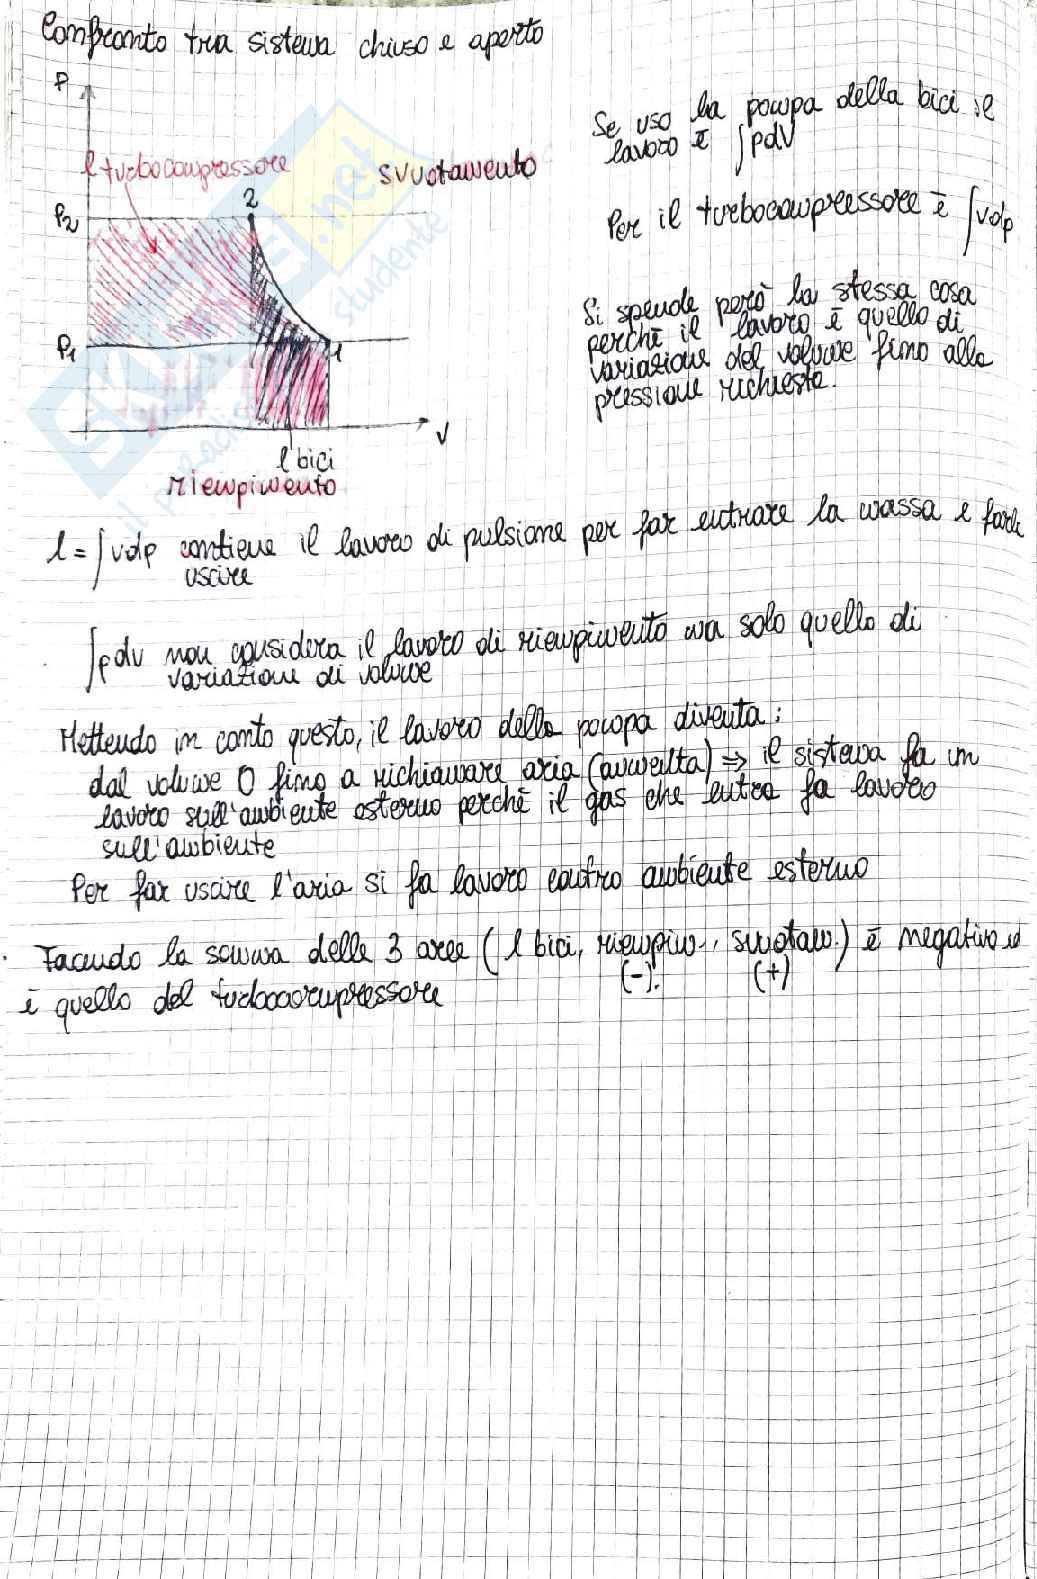 Confronto tra sistema chiuso e aperto
P
l turbocompressore
svuotamento
2
P2
P1
1
V
l bici
riempimento
Se uso la pompa della bici il
lavoro è ∫pdV
Per il turbocompressore è ∫vdp
Si spende però la stessa cosa
perché il lavoro è quello di
variazione del volume fino alla
pressione richiesta.
l = ∫vdp contiene il lavoro di pulsione per far entrare la massa e farla
uscire
∫pdv non considera il lavoro di riempimento ma solo quello di
variazione di volume
Mettendo in conto questo, il lavoro della pompa diventa:
dal volume 0 fino a richiamare aria (avvenuta) ⇒ il sistema fa un
lavoro sull'ambiente esterno perché il gas che entra fa lavoro
sull'ambiente
Per far uscire l'aria si fa lavoro contro ambiente esterno
. Facendo la somma delle 3 aree (l bici, riempim., svuotam.) è negativo ed
(-). (+)
è quello del turbocompressore
SKUOLA.net
il paradiso dello studente